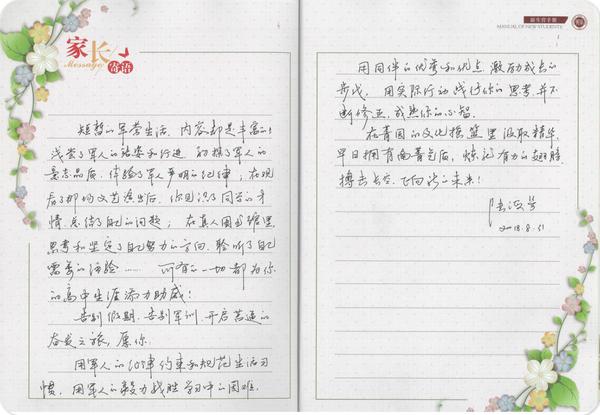 家长
Message
寄语
短暂的军营生活，内容却是丰富的：
浅尝了军人的站姿和行进，初探了军人的
意志品质，体验了军人严明的纪律；在观
看了部队文艺演出后，你见识了同学的才
情，总结了自己的问题；在真人图书馆里
思考和坚定了自己努力的方向，聆听了自己
需要的经验……所有的一切都为你
的高中生涯添力助威！
告别假期，告别军训，开启普通的
奋发之旅，愿你
用军人的纪律约束和规范生活习
惯，用军人的毅力战胜学习中的困难，
新生官手册
MANUAL OF NEW STUDENTS
用同伴的优秀和优点激励成长的
步伐，用实际行动践行你的思考并不
断修正，成熟你的心智。
在育园的文化摇篮里汲取精华，
早日拥有面
有力的翅膀，
搏击长空，飞向
的未来！
2018.8.31